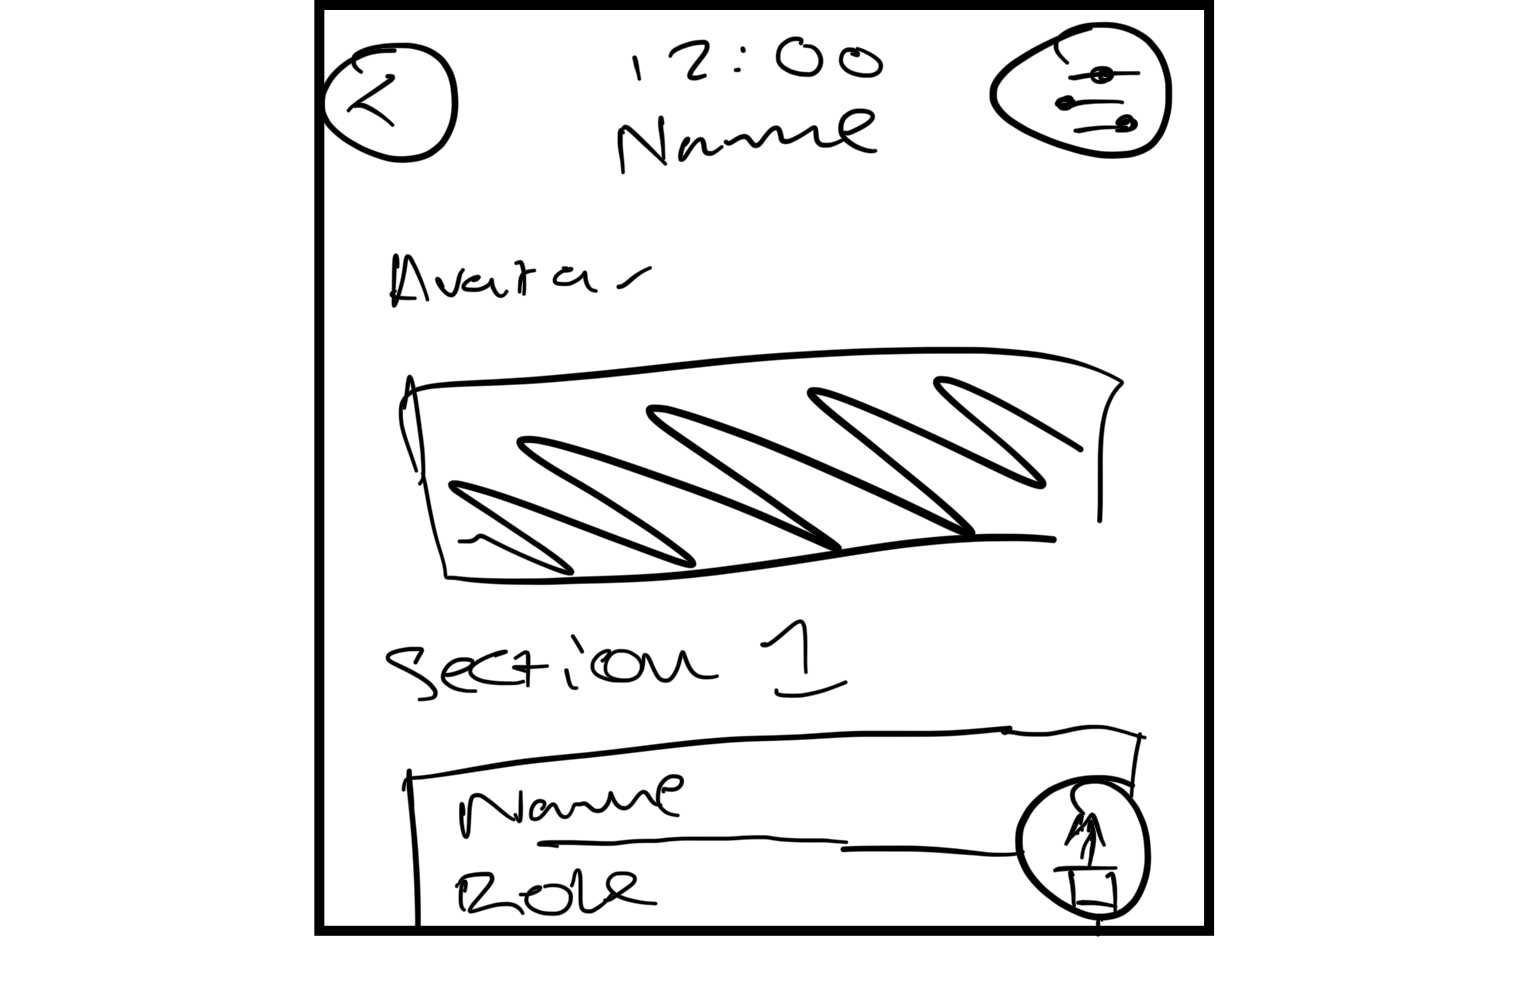 12:00
Name
Avatar
Section 1
Name
Role